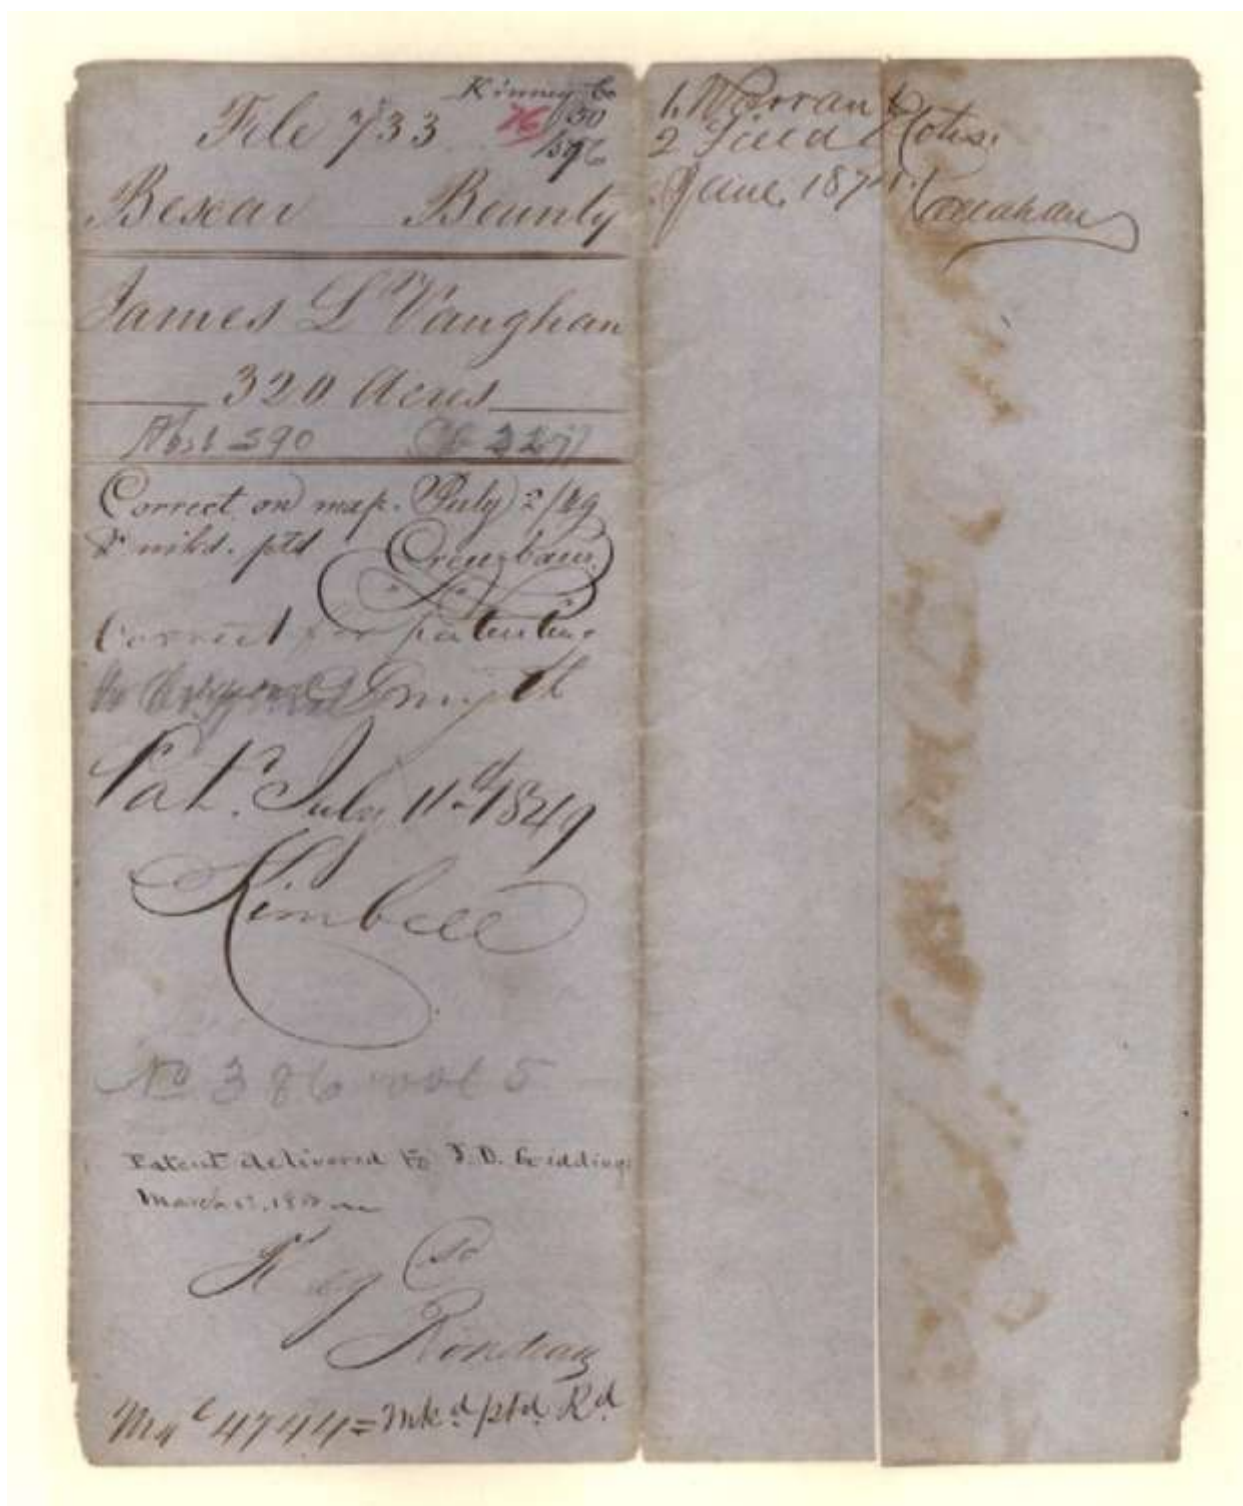 Kinney Co
File 733
Bexar Bounty
James L Vaughan
320 Acres
Abst 590
Correct on map. July 2/49
& mkd. ptd Creuzbaur
Correct for patenting
Smyth
Pat. July 11th 1849
Kimbell
No 386 vol 5
Patent delivered to J. D. Giddings
March
Co
Rondeau
4744 = Mkd ptd Rd
1. Warrant
2 Field Notes.
June, 1871.